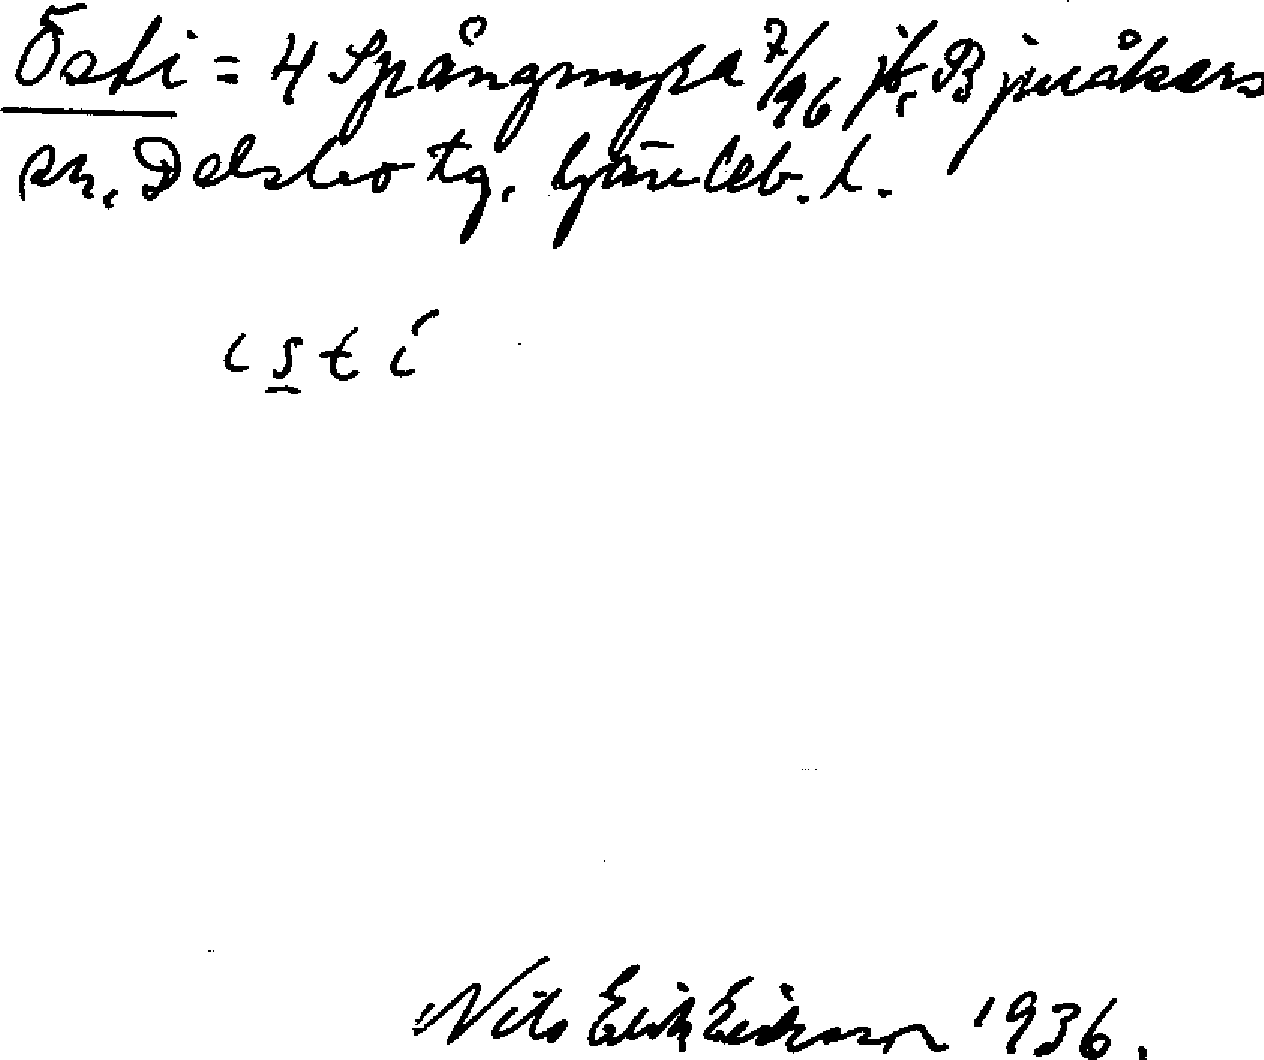 Östi = 4 Spångmyra 7/96 jb, Bjuråkers
sn. Delsbo tg. Gävleb. l.
ı s t í
Nils Erik Eriksson 1936.